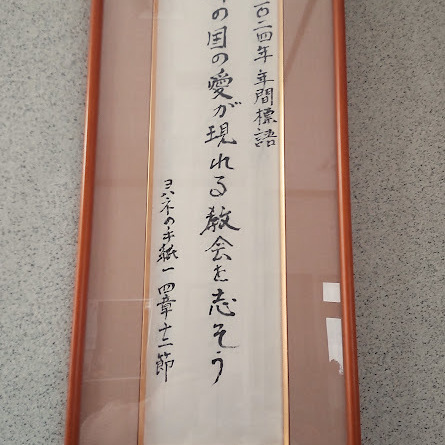 〇二四年 年間標語
の国の愛が現れる教会を志そう
ヨハネの手紙一 四章十二節